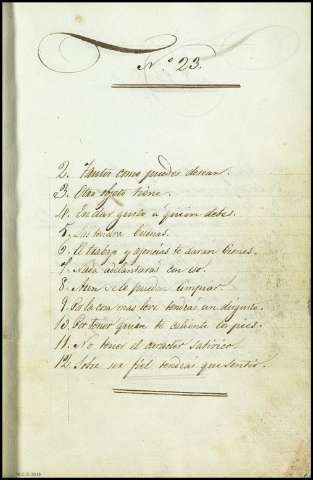 N.º 23.
2. Tantos como puedes desear.
3. Otro objeto tiene.
4. En dar gusto á quien debe.
5. Las tendrá buenas.
6. El trabajo y agencias te daran bienes.
7. Nada adelantaras con eso.
8. Aun se le puedan limpiar.
9. Por la cosa mas leve tendrás un disgusto.
10. Por tener quien te caliente los pies.
11. No tener el caracter satirico.
12. Sobre ser fiel tendrás que sentir.